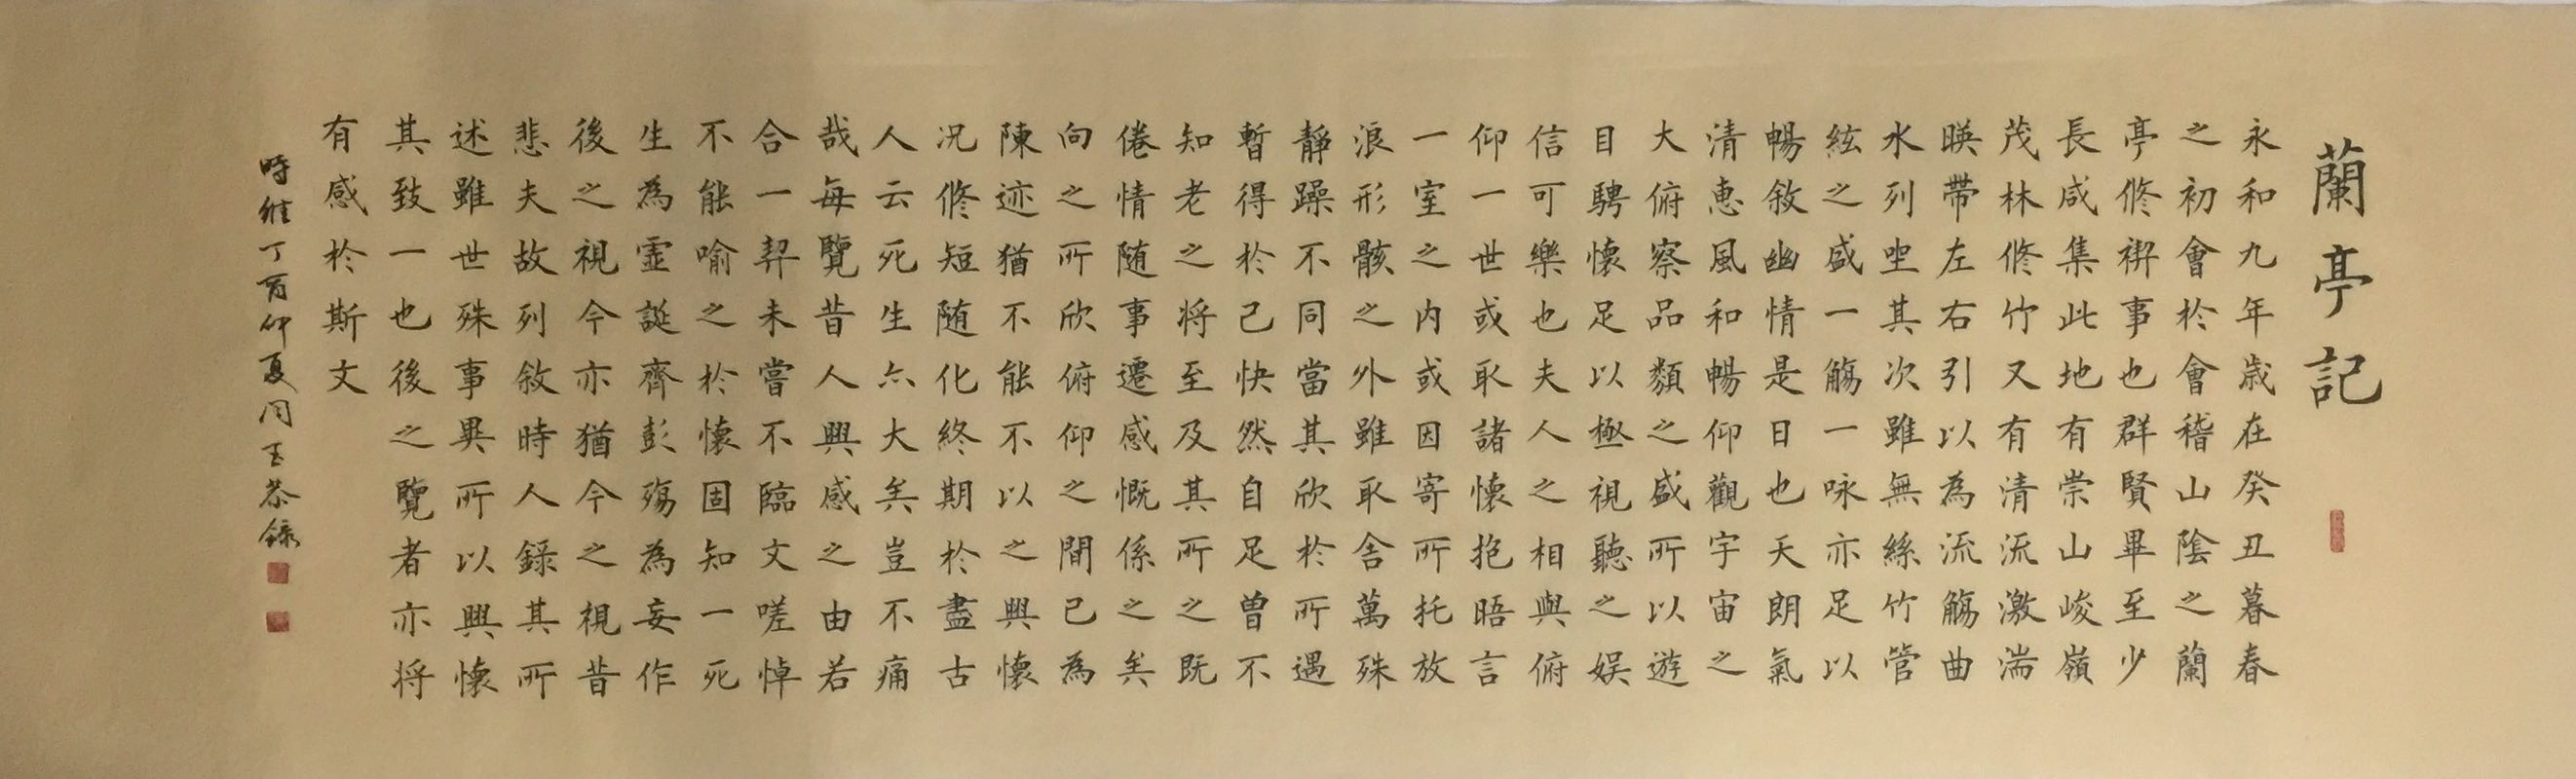 蘭亭記
永和九年歲在癸丑暮春
之初會於會稽山陰之蘭
亭修禊事也群賢畢至少
長咸集此地有崇山峻嶺
茂林修竹又有清流激湍
暎帶左右引以為流觴曲
水列坐其次雖無絲竹管
絃之盛一觴一咏亦足以
暢敘幽情是日也天朗氣
清惠風和暢仰觀宇宙之
大俯察品類之盛所以遊
目騁懷足以極視聽之娛
信可樂也夫人之相與俯
仰一世或取諸懷抱晤言
一室之內或因寄所托放
浪形骸之外雖取舍萬殊
靜躁不同當其欣於所遇
暫得於己快然自足曾不
知老之將至及其所之既
倦情随事遷感慨係之矣
向之所欣俯仰之間已為
陳迹猶不能不以之興懷
況修短随化終期於盡古
人云死生亦大矣豈不痛
哉每覽昔人興感之由若
合一契未嘗不臨文嗟悼
不能喻之於懷固知一死
生為虛誕齊彭殤為妄作
後之視今亦猶今之視昔
悲夫故列敘時人錄其所
述雖世殊事異所以興懷
其致一也後之覽者亦將
有感於斯文
時維丁酉仲夏玉恭錄